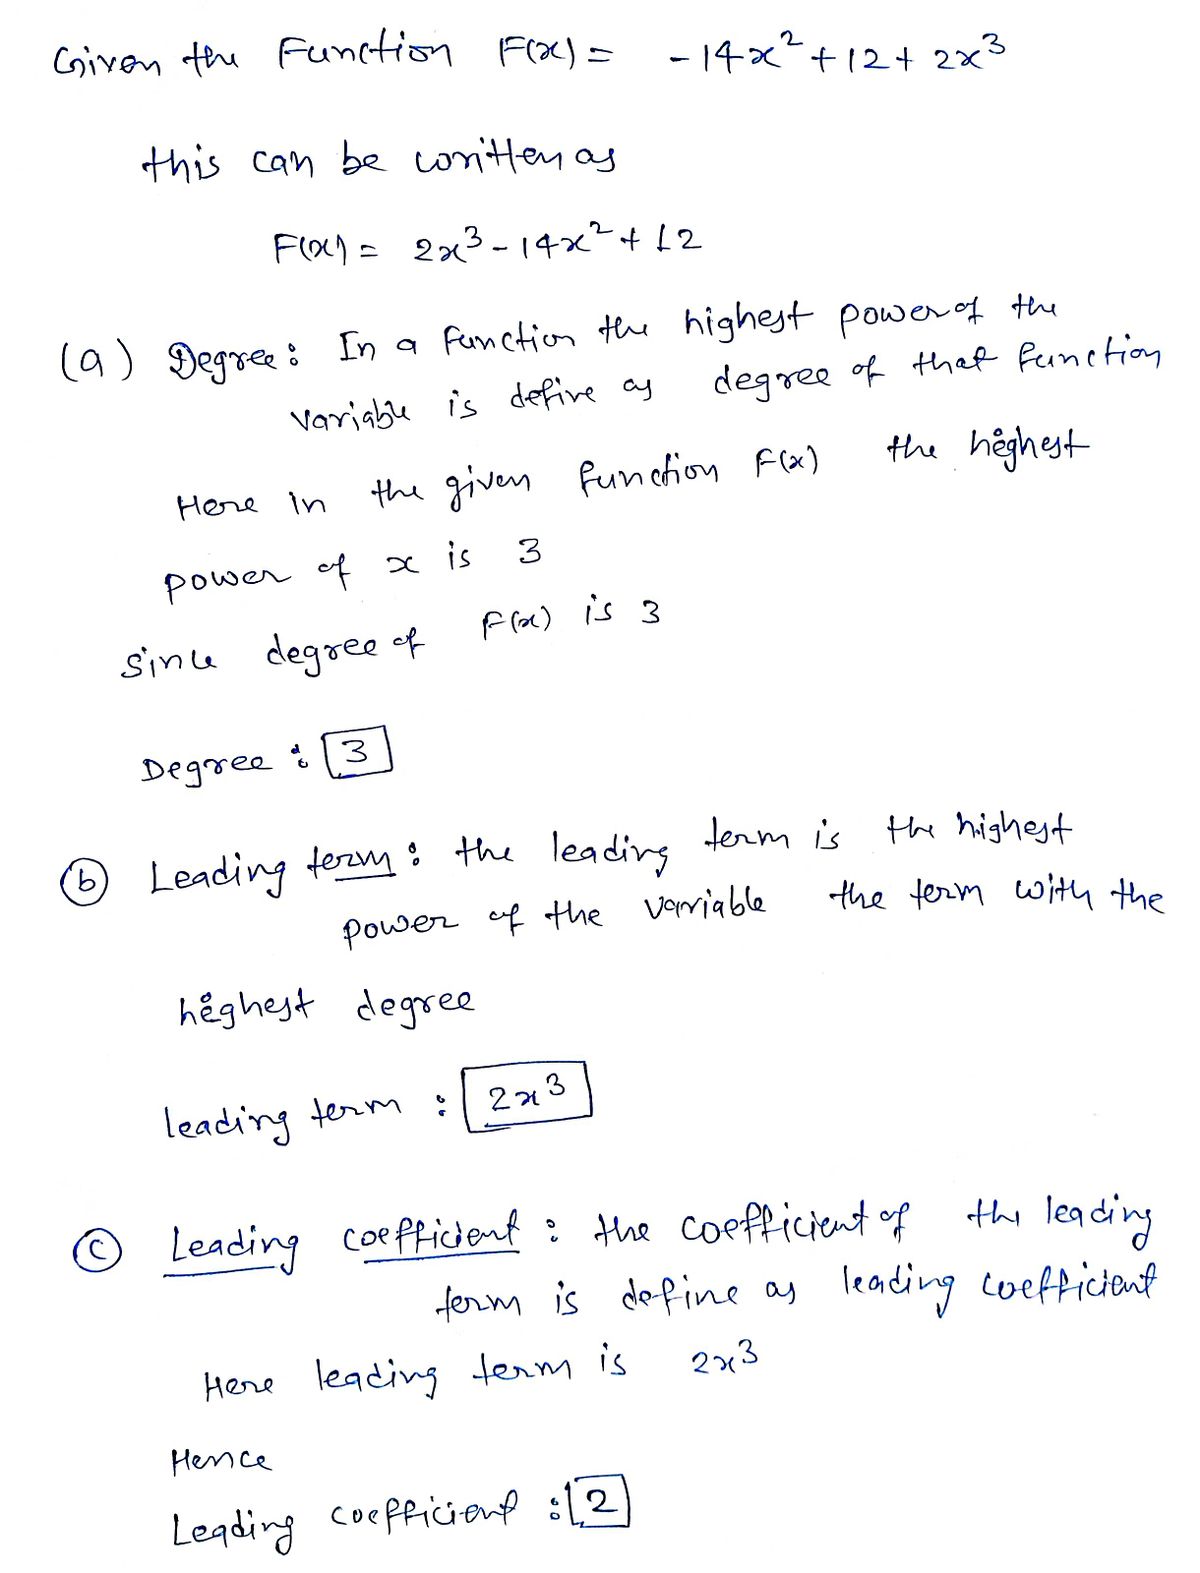 Given the Function F(x) = -14x² + 12 + 2x³
this can be written as
F(x) = 2x³ - 14x² + 12
(a) Degree : In a function the highest power of the
variable is define as degree of that function
Here in the given function F(x) the highest
power of x is 3
Since degree of F(x) is 3
Degree : 3
(b) Leading term : the leading term is the highest
power of the variable the term with the
highest degree
leading term : 2x³
(c) Leading coefficient : the coefficient of the leading
term is define as leading coefficient
Here leading term is 2x³
Hence
Leading coefficient : 2